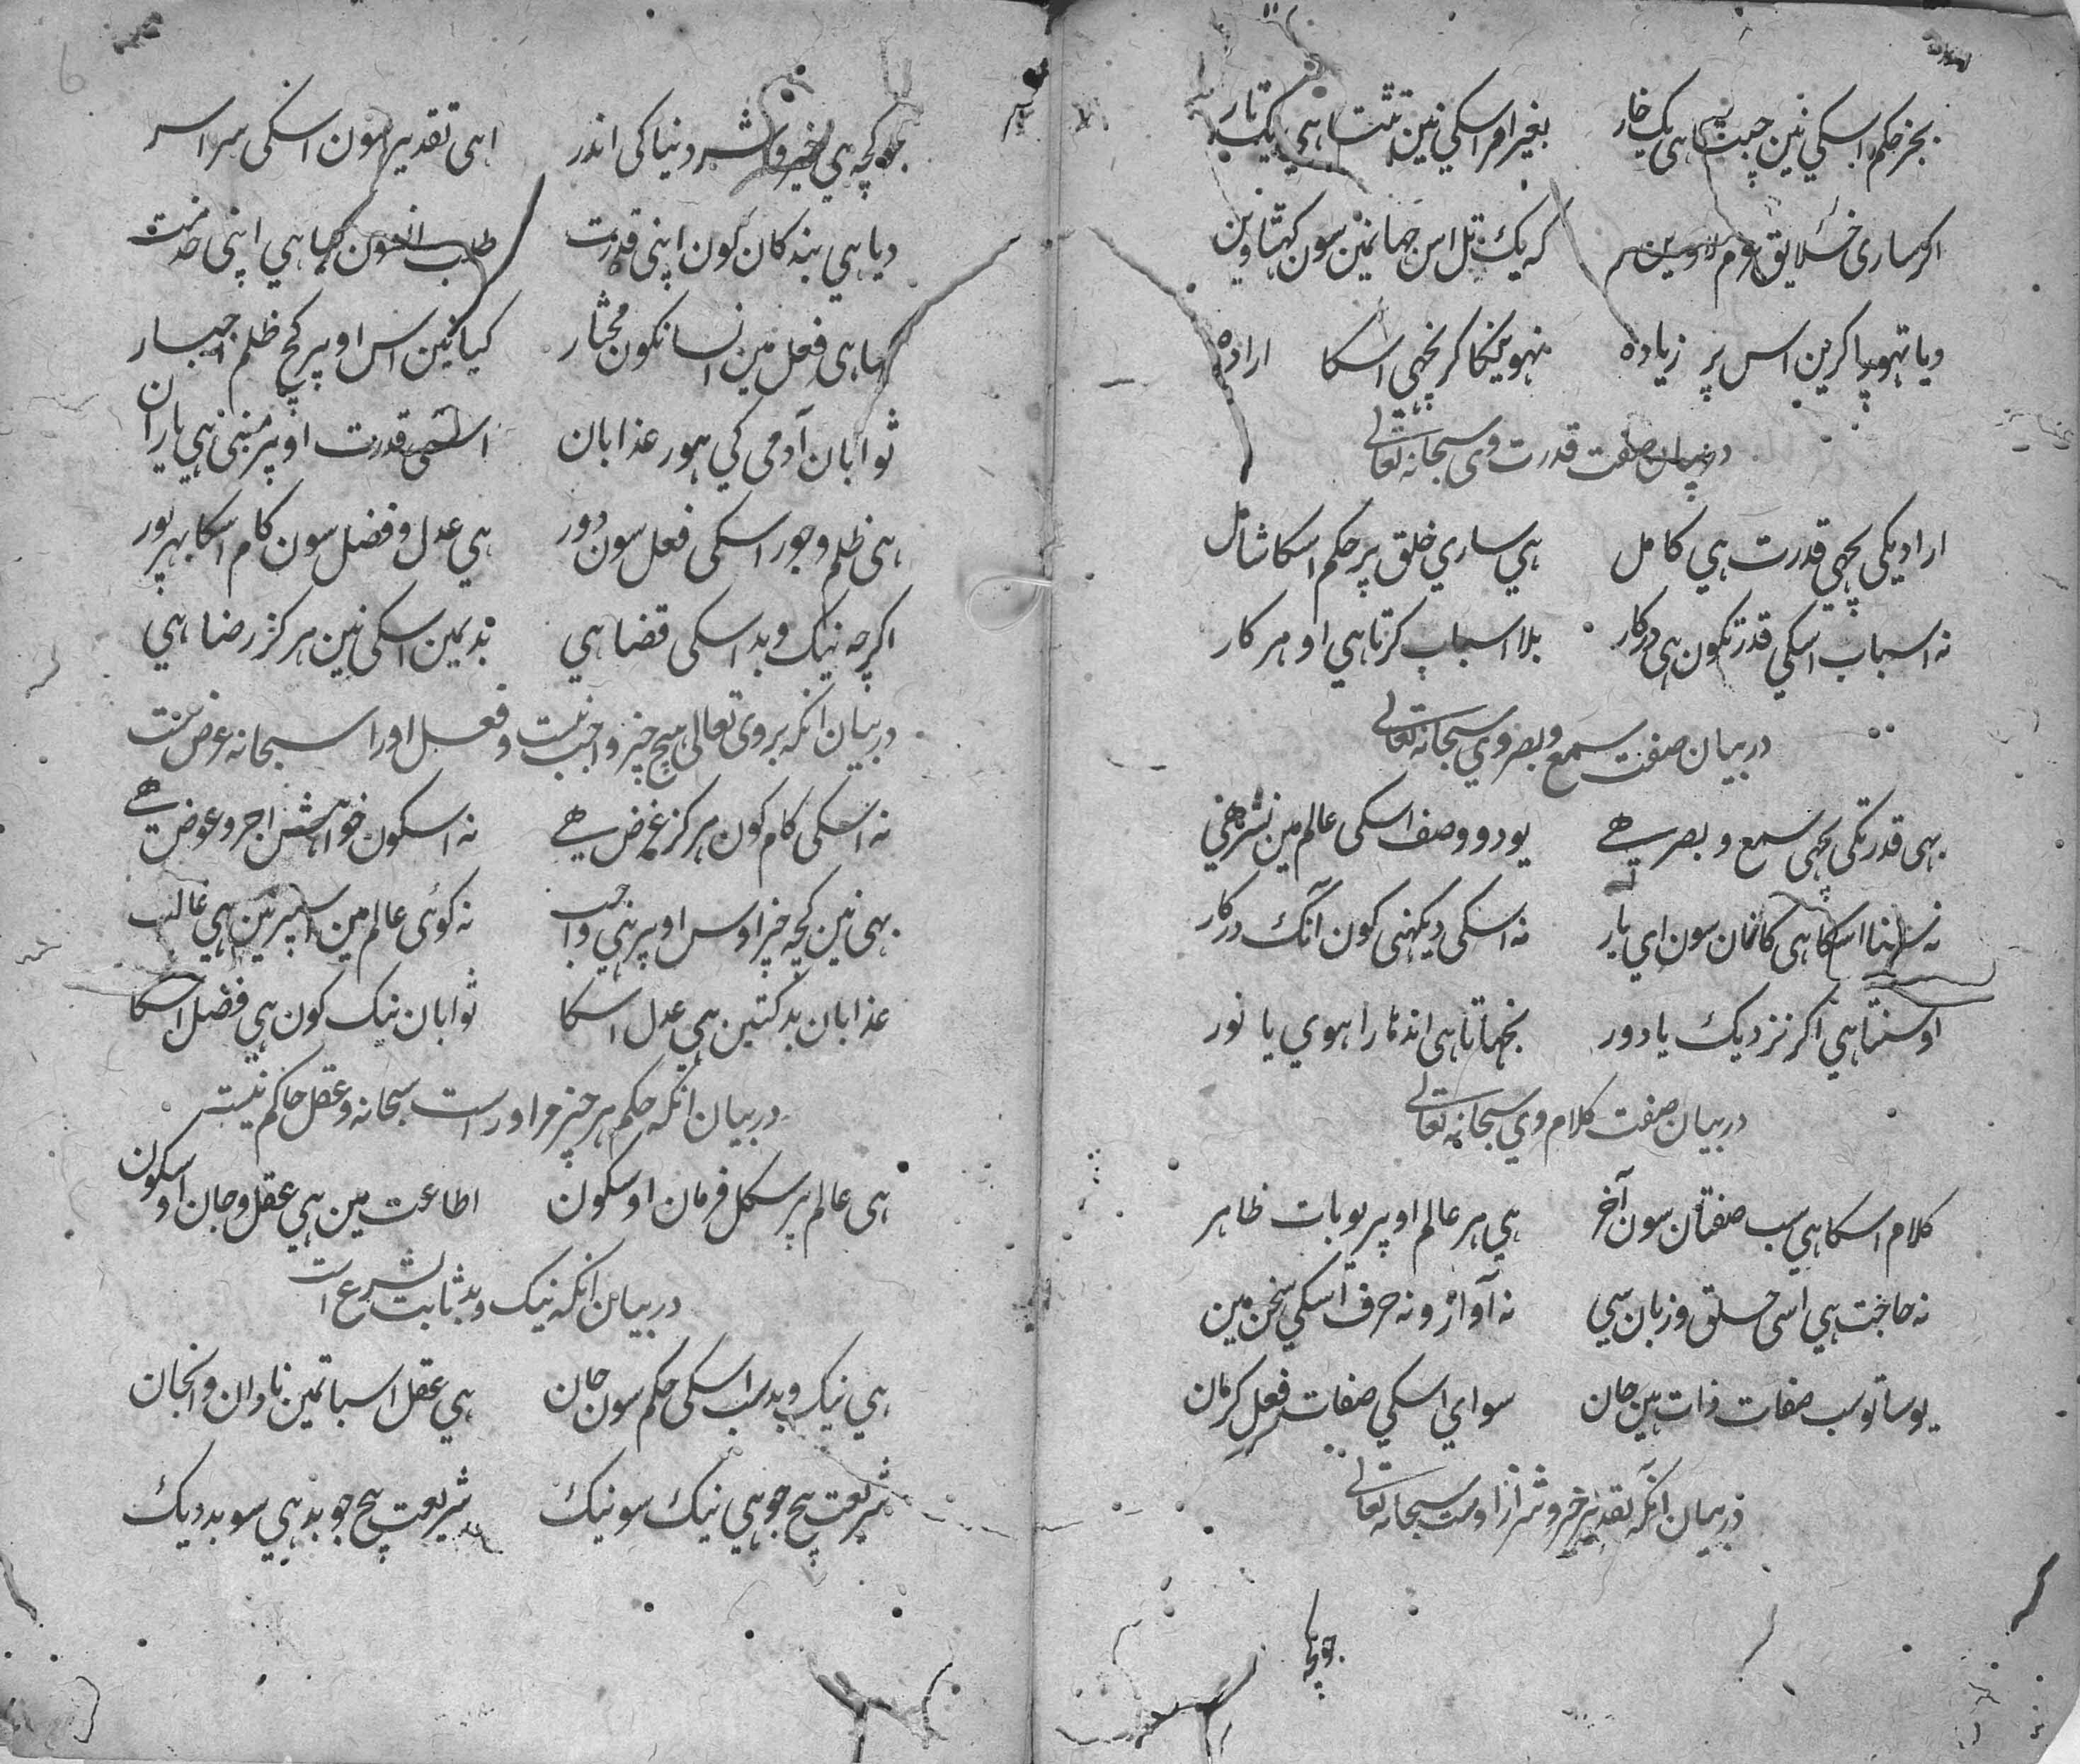 بجز حکم اسکي نين چبتا هی یک خار بغیر امر اسکي نین تتتا هي یک تار
اکر ساری خلایق زوم لاوین کہ یک تل اس جہانمین سون کہتاوین
ویا تہوپا کرین اس پر زیادہ نہوینکا کر نچهی اسکا ارادہ
در بیان صفت قدرت وی سبحانہ تعالی
ارادیکی پچهي قدرت هي کامل هي ساري خلق پر حکم اسکا شامل
نہ اسباب اسکي قدرتکون هی درکار بلا اسباب کرتا هي او هر کار
در بیان صفت سمع و بصر وي سبحانہ تعالی
بهی قدرتکی پچهی سمع و بصر هے یو دو وصف اسکی عالم مین نشر هي
نہ سننا اسکا هی کانمان سون اي یار نہ اسکی دیکهنی کون آنک درکار
او سنتا هي اکر نزدیک یا دور پچهانتا هی اندهارا هوي یا نور
در بیان صفت کلام وي سبحانہ تعالی
کلام اسکا هي سب صفتان سون آخر هي هر عالم اوپر یو بات ظاهر
نہ حاجت هي اسی حلق و زبان سي نہ آواز و نہ حرف اسکي سخن مین
یو ساتو سب صفات ذات هین جان سواي اسکي صفات فعل کرمان
در بیان آنکہ تقدیر خیر و شر از اوست سبحانہ تعالی
جو کچہ
جو کچہ هي خیر و شر دنیا کی اندر اهی تقدیر سون اسکی سراسر
دیا هي بندکان کون اپنی قدرت طلب انسون کیا هي اپنی خدمت
کیا هی فعل مین انسانکون مختار کیا نین اس اوپر کچ ظلم اجبار
ثوابان آدمی کي هور عذابان اسی قدرت اوپر مبنی هي یاران
هی ظلم و جور اسکی فعل سون دور هي عدل و فضل سون کام اسکا بهرپور
اکرچہ نیک و بد اسکی قضا هي بدیمین اسکی نین هرکز رضا هي
در بیان انکہ بر وی تعالی هیچ چیز واجب نیست و فعل اورا سبحانہ عوض نیست
نہ اسکی کام کون هرکز غرض هے نہ اسکون خواهش اجر و عوض هے
بهی نین کچہ چیز اوس اوپر هي واجب نہ کوئی عالم مین اسپر نین هي غالب
عذابان بد کتین هي عدل اسکا ثوابان نیک کون هي فضل اسکا
در بیان انکہ حکم هر چیز مر اوراست سبحانہ و عقل حاکم نیست
هی عالم پر سکل فرمان اوسکون اطاعت مین هي عقل و جان اوسکون
در بیان انکہ نیک و بد ثابت بشرع است
هي نیک و بد سب اسکی حکم سون جان هي عقل اسباتمین نادان و انجان
شریعت بیچ جو هي نیک سو نیک شریعت بیچ جو بد هي سو بد دیک